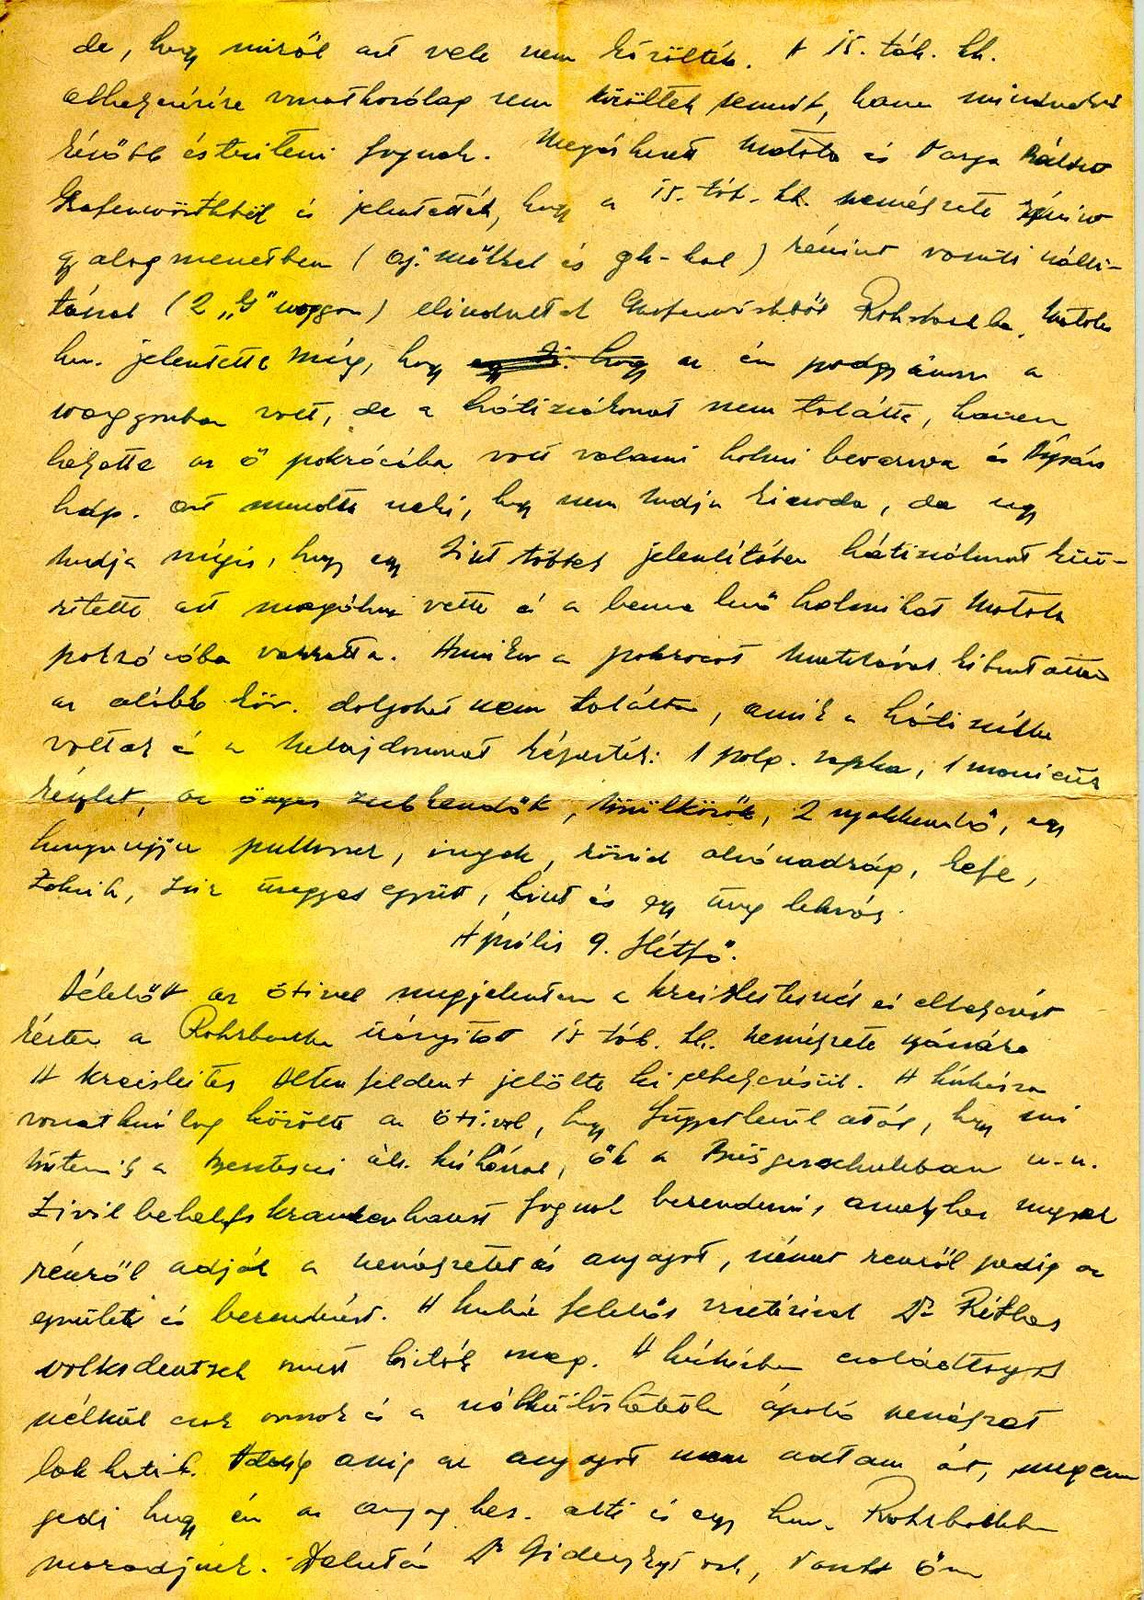 de, hogy miről azt vele nem közölték. A 15. táb. kh.
elhelyezésére vonatkozólag sem közöltek semmit, hanem mindenkit
később értesíteni fognak. Megérkezett Matola és Varga
Grafenwörthből és jelentették, hogy a 15. táb. kh. személyzete
gyalogmenetben ( és gk-kal) részint vonati szállí-
tással (2 "G" waggon) elindultak Grafenwörthből Rohrbachba. Matola
hv. jelentette még, hogy az én podgyászom a
waggonban volt, de a hátizsákomat nem találta, hanem
helyette az ő pokrócába volt valami holmi bevarrva és
azt mondta neki, hogy nem tudja kicsoda, de úgy
tudja mégis, hogy egy tiszt többek jelenlétében hátizsákomat kiü-
rítette azt magához vette és a benne levő holmikat Matola
pokrócába varratta. Amikor a pokrócot Matolával kibontottuk
az alább köv. dolgokat nem találtam, amik a hátizsákba
voltak és a tulajdonomat képezték: 1 polg. sapka, 1 manicür
készlet, az összes zsebkendők, törülközők, 2 nyakkendő, egy
hosszuujju pullover, ingek, rövid alsónadrág, kefe,
Zoknik, zsír üvegjes együtt, liszt és egy üveg lekvár.
Április 9. Hétfő.
Délelőtt az őtivel megjelentem a kreisleiternél és elhelyezést
kértem a Rohrbachba irányított 15 táb. kh. személyzete számára
A kreisleiter Altenfeldent jelölte ki elhelyezésül. A kórházra
vonatkozólag közölte az őtivel, hogy függetlenül attól, hogy mi
történik a szentesi áll. kórházzal, ők a Bürgerschuleban u.n.
Zivilbehelfskrankenhaust fognak berendezni, amelyhez magyar
részről adják a személyzetet és anyagot, német részről pedig az
épületet és berendezést. A kórház felelős vezetésével Dr Réthes
volksdeutsch bízták meg. A kórházban családtagok
nélkül csak orvosok és a nélkülözhetetlen ápoló személyzet
lakhatik. Addig amíg az anyagot nem adtam át, megen-
gedi hogy én az anyag kez. alti és egy hv. Rohrbachban
maradjunk. Délután Dr